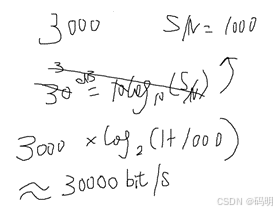 3000 S/N=1000
30 dB = 10log₁₀(S/N)
3000 × log₂(1+1000)
≈ 30000 bit/s
CSDN @码明